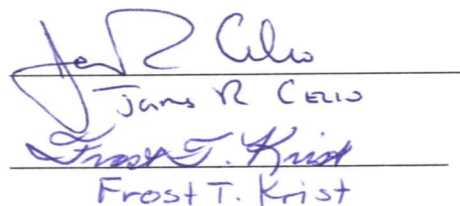 James R Celio
James R Celio
Frost T. Krist
Frost T. Krist